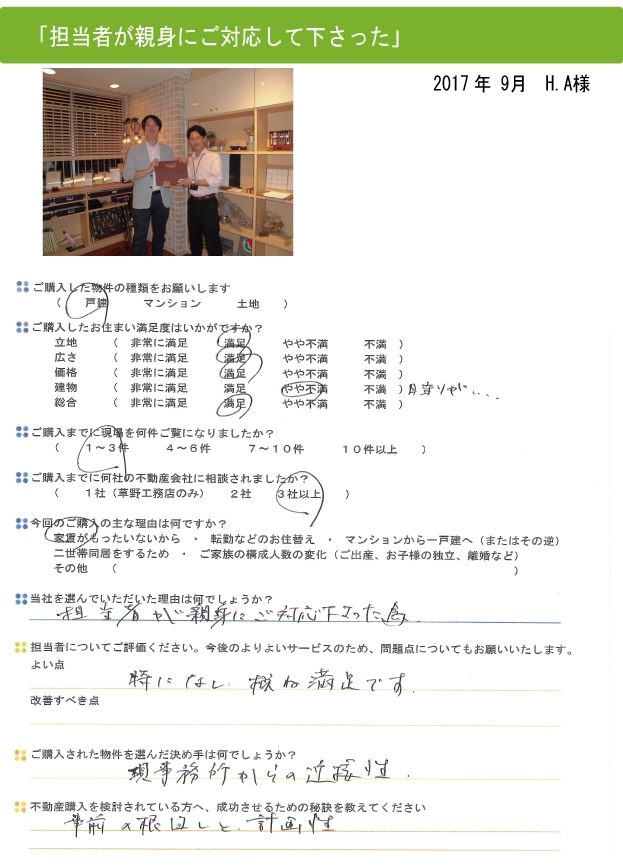 「担当者が親身にご対応して下さった」
2017年 9月 H.A様
ご購入した物件の種類をお願いします
( 戸建 マンション 土地 )
ご購入したお住まい満足度はいかがですか?
立地 ( 非常に満足 満足 やや不満 不満 )
広さ ( 非常に満足 満足 やや不満 不満 )
価格 ( 非常に満足 満足 やや不満 不満 )
建物 ( 非常に満足 満足 やや不満 不満 )
総合 ( 非常に満足 満足 やや不満 不満 )
ご購入までに現場を何件ご覧になりましたか?
( 1～3件 4～6件 7～10件 10件以上 )
ご購入までに何社の不動産会社に相談されましたか?
( 1社(草野工務店のみ) 2社 3社以上 )
今回のご購入の主な理由は何ですか?
家賃がもったいないから ・ 転勤などのお住替え ・ マンションから一戸建へ(またはその逆)
二世帯同居をするため ・ ご家族の構成人数の変化(ご出産、お子様の独立、離婚など)
その他 ( )
当社を選んでいただいた理由は何でしょうか?
担当者が親身にご対応下さった為.
担当者についてご評価ください。今後のよりよいサービスのため、問題点についてもお願いいたします。
よい点
特になし. 概ね満足です.
改善すべき点
ご購入された物件を選んだ決め手は何でしょうか?
現事務所からの近接性.
不動産購入を検討されている方へ、成功させるための秘訣を教えてください
事前の根回しと計画性